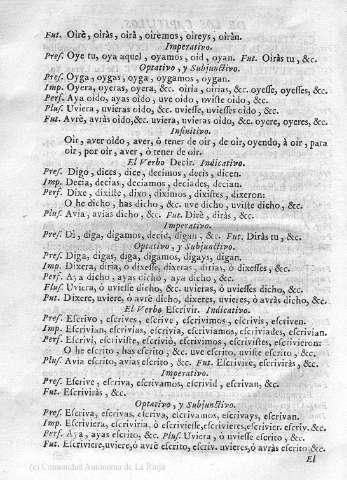 Fut. Oirè, oiràs, oirà, oiremos, oireys, oiràn.
Imperativo.
Pres. Oye tu, oya aquel, oyamos, oid, oyan. Fut. Oiràs tu, &c.
Optativo, y Subjunctivo.
Pres. Oyga, oygas, oyga, oygamos, oygan.
Imp. Oyera, oyeras, oyera, &c. oiria, oirias, &c. oyesse, oyesses, &c.
Pers. Aya oido, ayas oido, uve oido, uviste oido, &c.
Plus. Uviera, uvieras oido, &c. uviesse, uviesses oido, &c.
Fut. Avrè, avràs oido, &c. uviera, uvieras oido, &c. oyere, oyeres, &c.
Infinitivo.
Oir, aver oido, aver, ò tener de oir, de oir, oyendo, à oir, para
oir, por oir, aver, ò tener de oir.
El Verbo Decir. Indicativo.
Pres. Digo, dices, dice, decimos, decis, dicen.
Imp. Decia, decias, deciamos, deciades, decian.
Pers. Dixe, dixiste, dixo, diximos, dixistes, dixeron:
O he dicho, has dicho, &c. uve dicho, uviste dicho, &c.
Plus. Avia, avias dicho, &c. Fut. Dirè, diràs, &c.
Imperativo.
Pres. Di, diga, digamos, decid, digan, &c. Fut. Diràs tu, &c.
Optativo, y Subjunctivo.
Pres. Diga, digas, diga, digamos, digays, digan.
Imp. Dixera, diria, ò dixesse, dixeras, dirias, ò dixesses, &c.
Pers. Aya dicho, ayas dicho, aya dicho, &c.
Plus. Uviera, ò uviesse dicho, &c. uvieras, ò uviesses dicho, &c.
Fut. Dixere, uviere, ò avrè dicho, dixeres, uvieres, ò avràs dicho, &c.
El Verbo Escrivir. Indicativo.
Pres. Escrivo, escrives, escrive, escrivimos, escrivis, escriven.
Imp. Escrivia, escrivias, escrivia, escriviamos, escriviades, escrivian.
Pers. Escrivi, escriviste, escriviò, escrivimos, escrivistes, escrivieron:
O he escrito, has escrito, &c. uve escrito, uviste escrito, &c.
Plus. Avia escrito, avias escrito, &c. Fut. Escrivire, escriviràs, &c.
Imperativo.
Pres. Escrive, escriva, escrivamos, escrivid, escrivan, &c.
Fut. Escriviràs, &c.
Optativo, y Subjunctivo.
Pres. Escriva, escrivas, escriva, escrivamos, escrivays, escrivan.
Imp. Escriviera, escriviria, ò escriviesse, escrivieres, escrivier. escriv. &c.
Pers. Aya, ayas escrito, &c. Plus. Uviera, ò uviesse escrito, &c.
Fut. Escriviere, uviere, ò avrè escrito, escriv. uvieres, ò avràs escrito, &c.
El
(c) Comunidad Autonoma de La Rioja